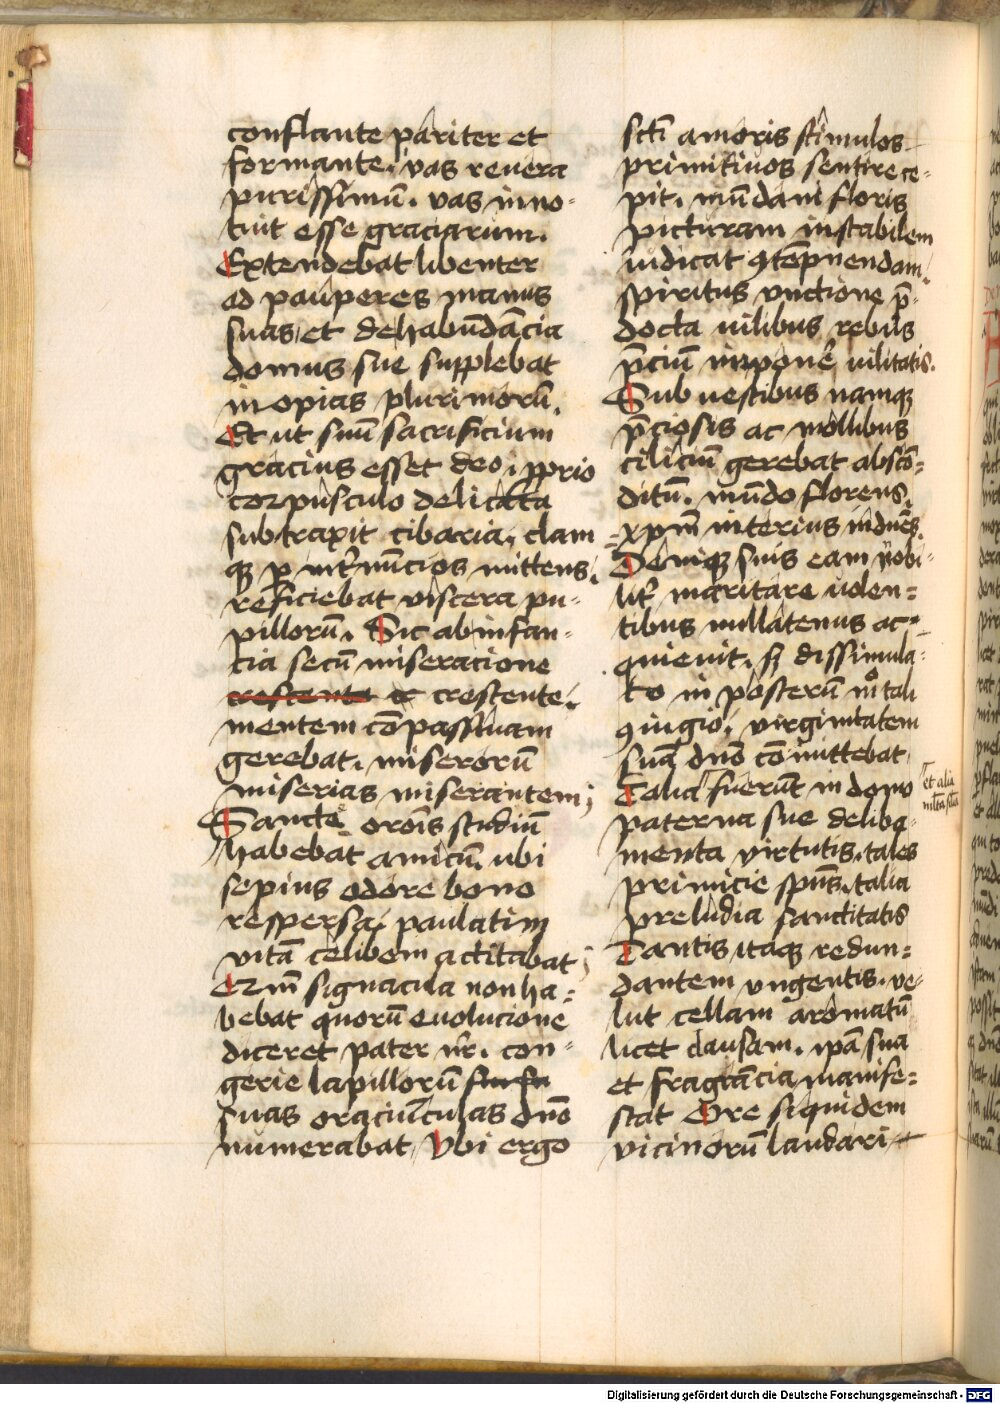 conflante pariter et
formante. vas reuera
purissimū. vas inno-
tuit esse graciarum.
Extendebat libenter
ad pauperes manus
suas et dehabūdācia
domus sue supplebat
inopias plurimorū.
Et ut suū sacrificium
gracius esset deo. ꝓprio
corpusculo delicata
subtraxit cibaria. clam
qꝫ ꝑ int̄nūcios mittens.
reficiebat viscera pu-
pillorū. Sic ab infan-
tia secū miseracione
crescente et crescente.
mentem cōpassiuam
gerebat. miserorū
miserias miserantem
Sancte orōis studiū
habebat amicū. ubi
sepius odore bono
respersa. paulatim
vitā celibem actitabat
Et m̄ signacula non ha=
bebat quorū euolucione
diceret pater nr̄. con-
gerie lapillorū
suas oraciūculas dnō
numerabat. Vbi ergo
scti amoris stimulos
primitiuos sentire ce-
pit. mūdani floris
picturam instabilem
iudicat ꝯtēpnendam.
spiritus vnctione p̄-
docta uilibus rebus
p̄ciū imponer̄ uilitatis.
Sub uestibus namqꝫ
p̄ciosis ac mollibus
ciliciū gerebat abscō=
ditū. mūdo florens.
xp̄m interius induēs.
Deniqꝫ suis eam nobi-
lit̄ maritare uolen=
tibus nullatenus ac-
quieuit. sꝫ dissimula-
to in posterū mº tali
ꝯiugio. virginitatem
suā dnō cōmittebat.
Talia fuerūt in domo
et alia
mlta sīlia
paterna sue deliba-
menta virtutis. tales
primicie spūs. talia
preludia sanctitatis
Tantis itaqꝫ redun=
dantem vngentis. ve-
lut cellam aromatū
licet clausam. ipā sua
et fragrācia manife=
stat Ore siquidem
vicinorū laudari
Digitalisierung gefördert durch die Deutsche Forschungsgemeinschaft - DFG